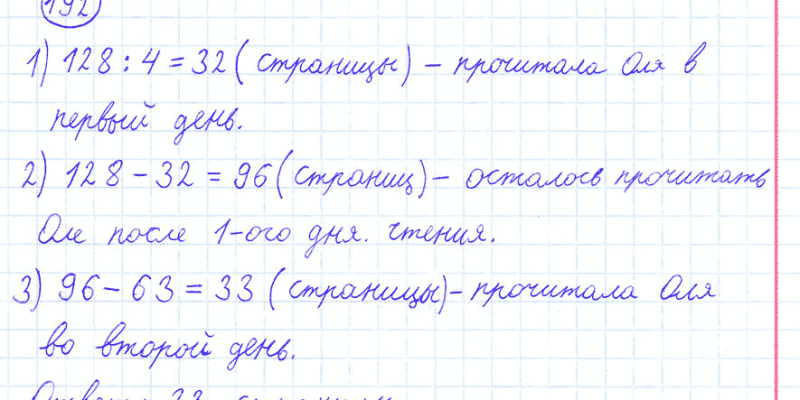 192
1) 128 : 4 = 32 (страницы) – прочитала Оля в
первый день.
2) 128 – 32 = 96 (страниц) – осталось прочитать
Оле после 1-ого дня. чтения.
3) 96 – 63 = 33 (страницы) – прочитала Оля
во второй день.
Ответ: 33 страницы.